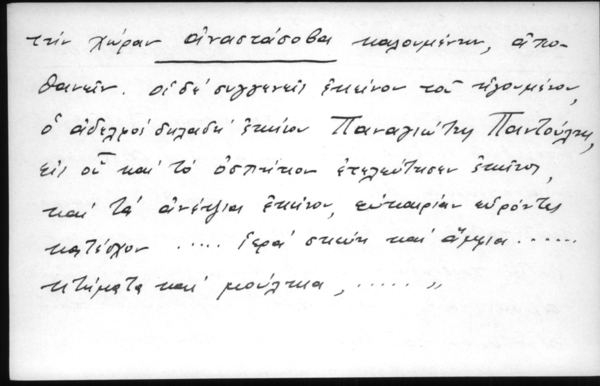 τὴν χώραν ἀναστάσοβα καλουμένην, ἀπο-
θανεῖν. οἱ δέ συγγενεῖς ἐκείνου τοῦ ἡγουμένου,
ὁ ἀδελφός δηλαδή ἐκείνου Παναγιώτης Παντούλης,
εἰς οὗ καί τό ὁσπήτιον ἐτελεύτησεν ἐκεῖνος,
καί τά ἀνέψια ἐκείνου, εὐκαιρίαν εὑρόντες
κατέσχον ..... ἱερά σκεύη καί ἄμφια ......
κτήματα καί μούλκια, ..... "